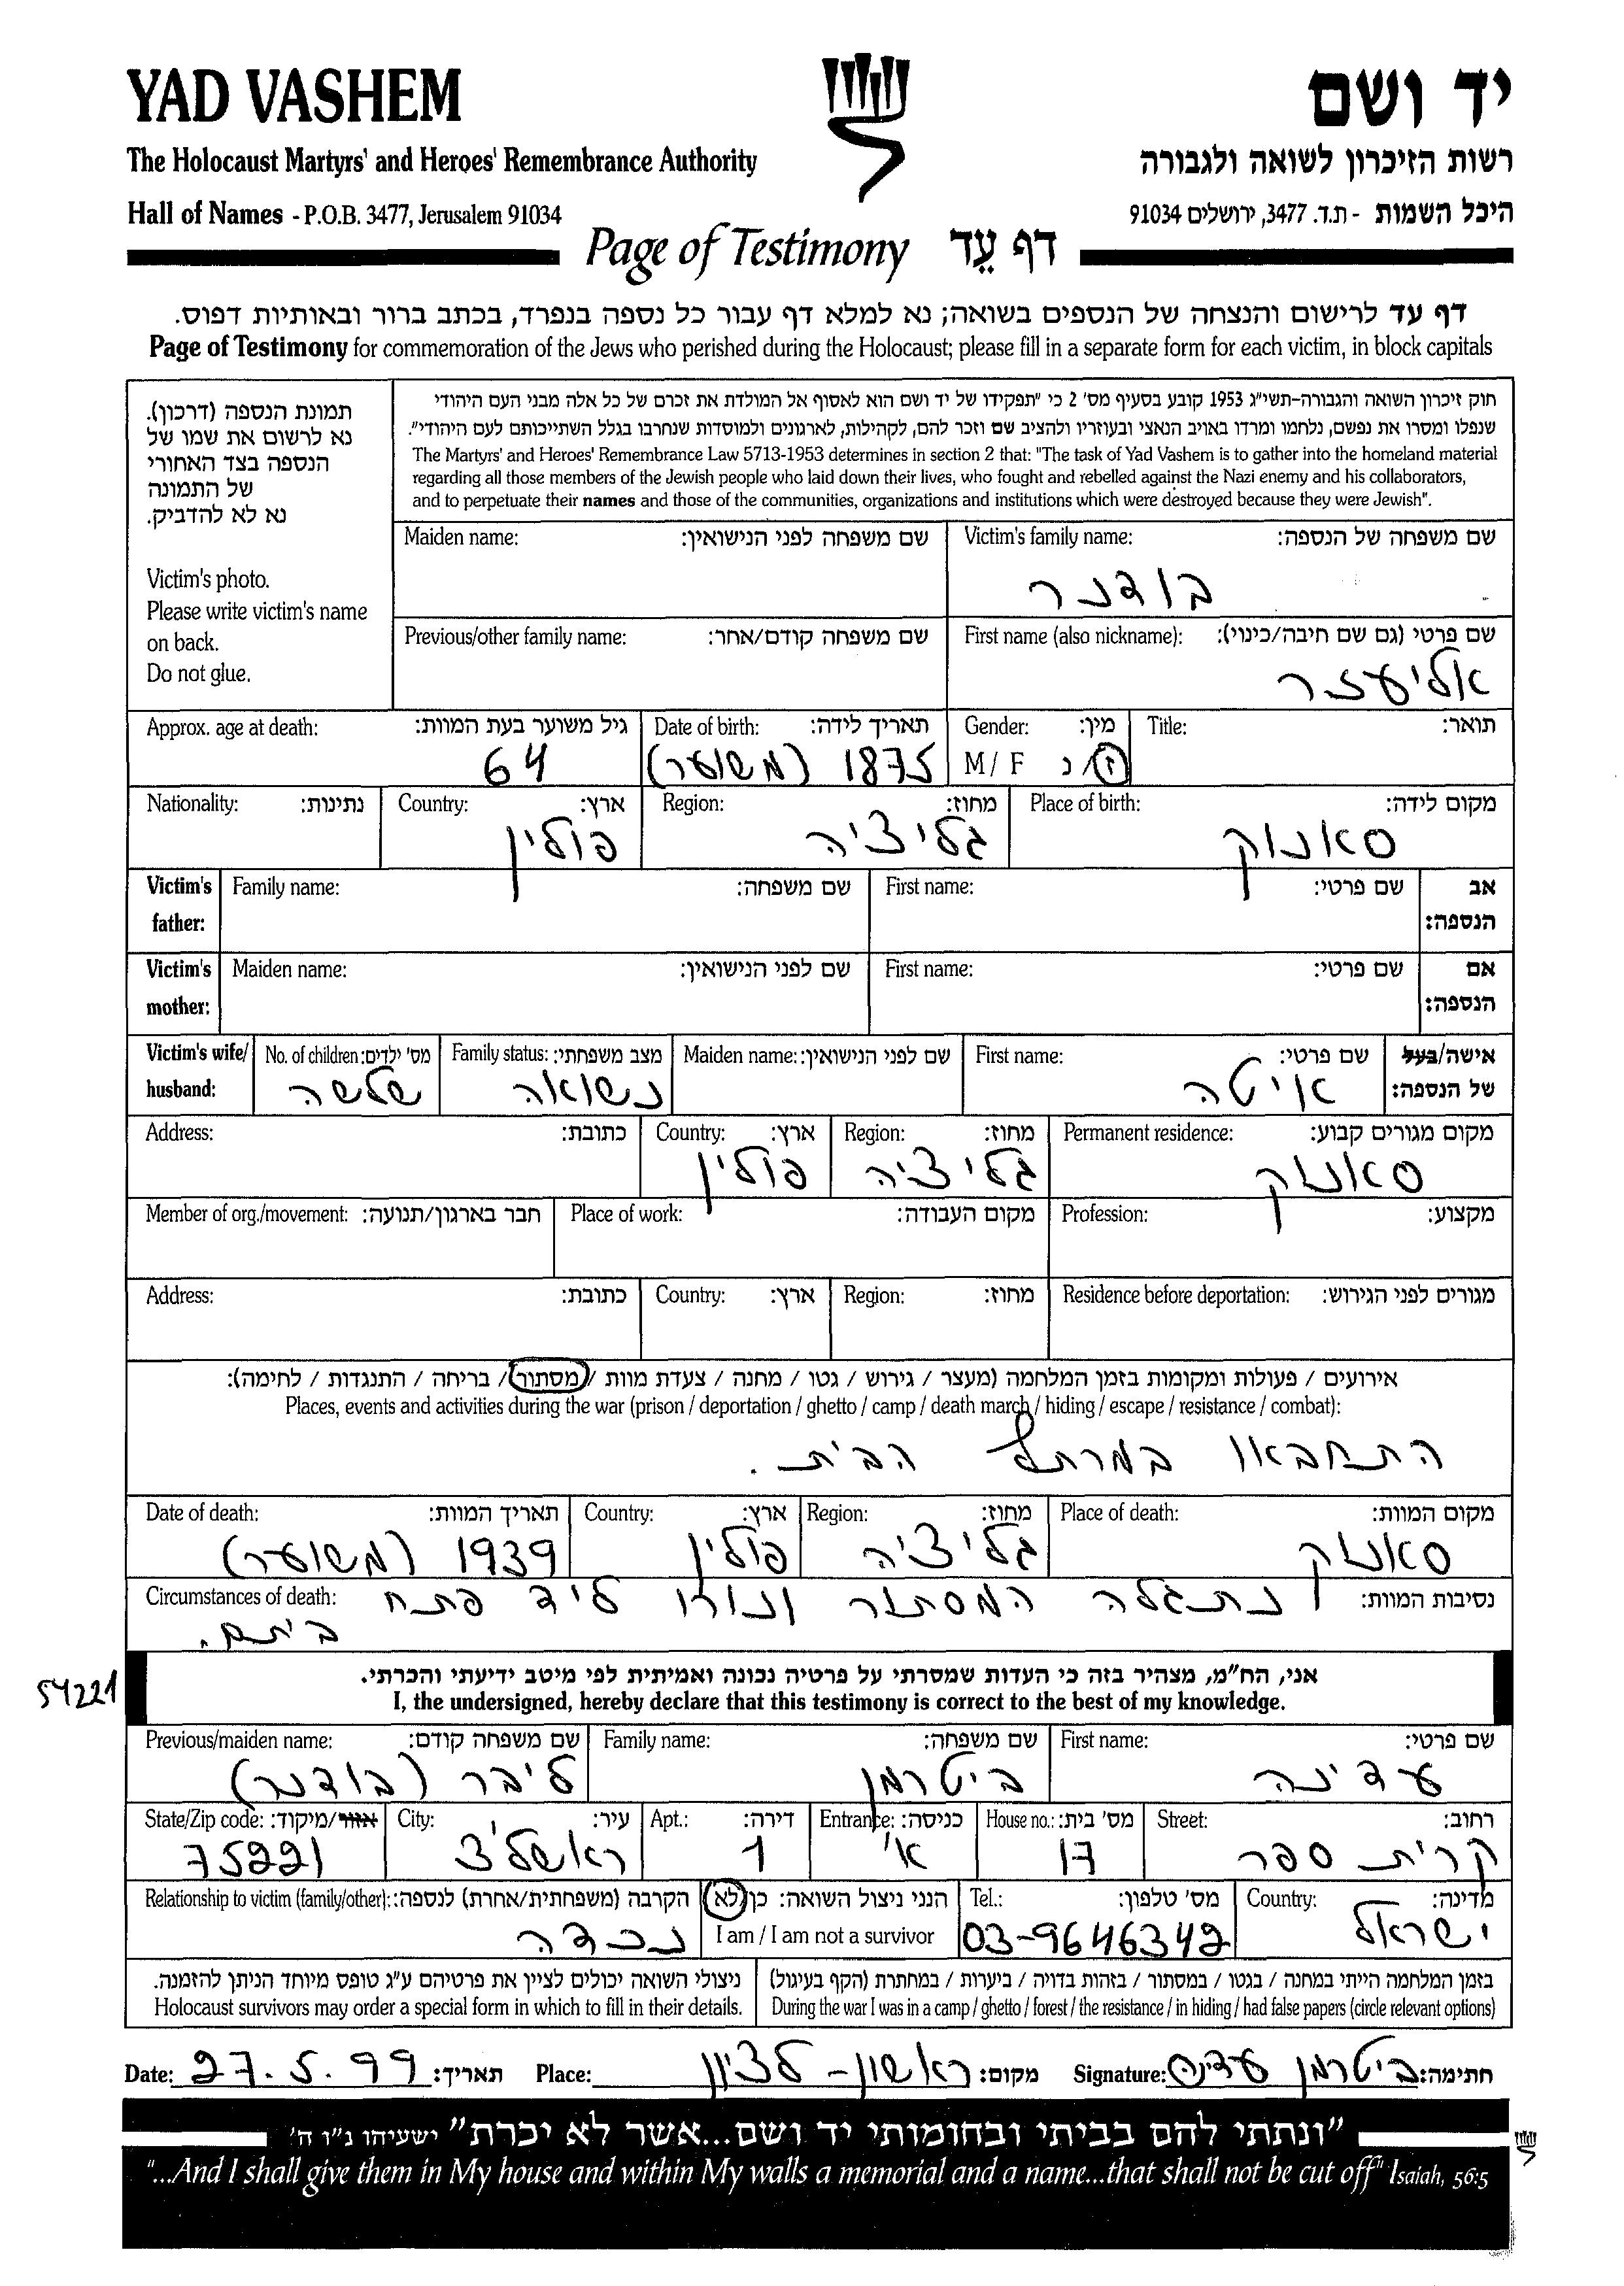 YAD VASHEM
יד ושם
The Holocaust Martyrs' and Heroes' Remembrance Authority
רשות הזיכרון לשואה ולגבורה
Hall of Names - P.O.B. 3477, Jerusalem 91034
היכל השמות - ת.ד. 3477, ירושלים 91034
Page of Testimony דף עֵד
דף עד לרישום והנצחה של הנספים בשואה; נא למלא דף עבור כל נספה בנפרד, בכתב ברור ובאותיות דפוס.
Page of Testimony for commemoration of the Jews who perished during the Holocaust; please fill in a separate form for each victim, in block capitals
תמונת הנספה (דרכון).
נא לרשום את שמו של
הנספה בצד האחורי
של התמונה
נא לא להדביק.
Victim's photo.
Please write victim's name
on back.
Do not glue.
חוק זיכרון השואה והגבורה-תשי"ג 1953 קובע בסעיף מס' 2 כי "תפקידו של יד ושם הוא לאסוף אל המולדת את זכרם של כל אלה מבני העם היהודי
שנפלו ומסרו את נפשם, נלחמו ומרדו באויב הנאצי ובעוזריו ולהציב שם וזכר להם, לקהילות, לארגונים ולמוסדות שנחרבו בגלל השתייכותם לעם היהודי".
The Martyrs' and Heroes' Remembrance Law 5713-1953 determines in section 2 that: "The task of Yad Vashem is to gather into the homeland material
regarding all those members of the Jewish people who laid down their lives, who fought and rebelled against the Nazi enemy and his collaborators,
and to perpetuate their names and those of the communities, organizations and institutions which were destroyed because they were Jewish".
Victim's family name: שם משפחה של הנספה:
בודנר
Maiden name: שם משפחה לפני הנישואין:
First name (also nickname): שם פרטי (גם שם חיבה/כינוי):
אליעזר
Previous/other family name: שם משפחה קודם/אחר:
Title: תואר:
Gender: מין:
M / F ז/נ
Date of birth: תאריך לידה:
1875 (משוער)
Approx. age at death: גיל משוער בעת המוות:
64
Place of birth: מקום לידה:
סאנוק
Region: מחוז:
גליציה
Country: ארץ:
פולין
Nationality: נתינות:
Victim's father: אב הנספה:
First name: שם פרטי:
Family name: שם משפחה:
Victim's mother: אם הנספה:
First name: שם פרטי:
Maiden name: שם לפני הנישואין:
Victim's wife/ husband: אישה/בעל של הנספה:
First name: שם פרטי:
איטה
Maiden name: שם לפני הנישואין:
Family status: מצב משפחתי:
נשואה
No. of children: מס' ילדים:
שלשה
Permanent residence: מקום מגורים קבוע:
סאנוק
Region: מחוז:
גליציה
Country: ארץ:
פולין
Address: כתובת:
Profession: מקצוע:
Place of work: מקום העבודה:
Member of org./movement: חבר בארגון/תנועה:
Residence before deportation: מגורים לפני הגירוש:
Region: מחוז:
Country: ארץ:
Address: כתובת:
אירועים / פעולות ומקומות בזמן המלחמה (מעצר / גירוש / גטו / מחנה / צעדת מוות / מסתור / בריחה / התנגדות / לחימה):
Places, events and activities during the war (prison / deportation / ghetto / camp / death march / hiding / escape / resistance / combat):
התחבאו במרתף הבית.
Place of death: מקום המוות:
סאנוק
Region: מחוז:
גליציה
Country: ארץ:
פולין
Date of death: תאריך המוות:
1939 (משוער)
Circumstances of death: נסיבות המוות:
נתגלה המסתור ונורו ליד פתח
ביתם.
54221
אני, הח"מ, מצהיר בזה כי העדות שמסרתי על פרטיה נכונה ואמיתית לפי מיטב ידיעתי והכרתי.
I, the undersigned, hereby declare that this testimony is correct to the best of my knowledge.
First name: שם פרטי:
עדינה
Family name: שם משפחה:
ביטרמן
Previous/maiden name: שם משפחה קודם:
ליבר (בודנר)
Street: רחוב:
קרית ספר
House no.: מס' בית:
17
Entrance: כניסה:
א'
Apt.: דירה:
1
City: עיר:
ראשל'צ
State/Zip code: אזור/מיקוד:
75221
Country: מדינה:
ישראל
Tel.: מס' טלפון:
03-9646342
הנני ניצול השואה: כן/לא
I am / I am not a survivor
Relationship to victim (family/other): הקרבה (משפחתית/אחרת) לנספה:
נכדה
בזמן המלחמה הייתי במחנה / בגטו / במסתור / בזהות בדויה / ביערות / במחתרת (הקף בעיגול)
During the war I was in a camp / ghetto / forest / the resistance / in hiding / had false papers (circle relevant options)
ניצולי השואה יכולים לציין את פרטיהם ע"ג טופס מיוחד הניתן להזמנה.
Holocaust survivors may order a special form in which to fill in their details.
Date: 27.5.99 תאריך: Place: ראשון-לציון מקום: Signature: ביטרמן עדינה חתימה:
"ונתתי להם בביתי ובחומותי יד ושם...אשר לא יכרת" ישעיהו נ"ו ה'
"...And I shall give them in My house and within My walls a memorial and a name...that shall not be cut off" Isaiah, 56:5